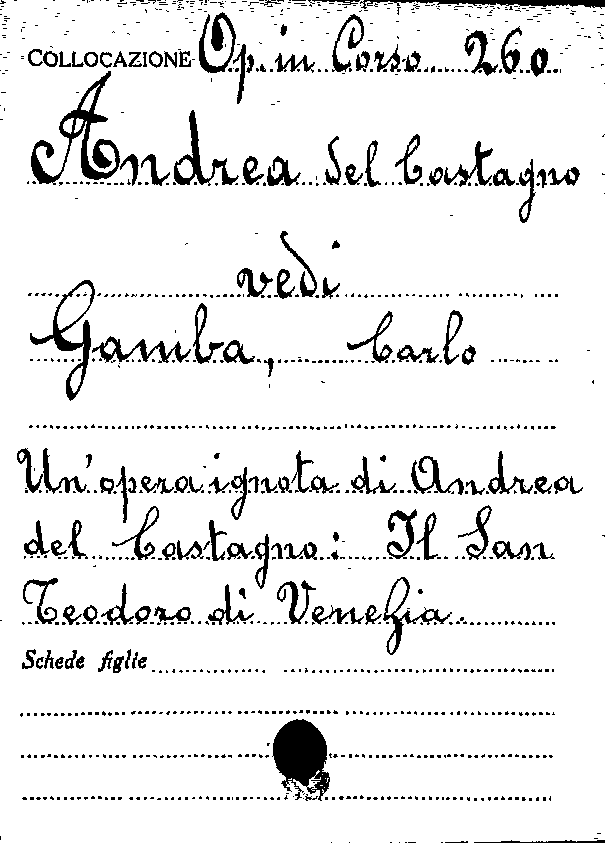 COLLOCAZIONE Op. in Corso 260
Andrea del Castagno
vedi
Gamba, Carlo
Un'opera ignota di Andrea
del Castagno: Il San
Teodoro di Venezia.
Schede figlie